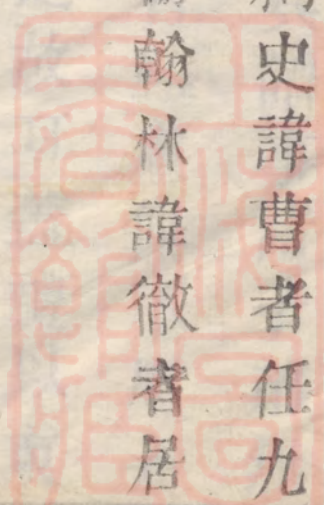 史諱曹者任九
翰林諱徹者居